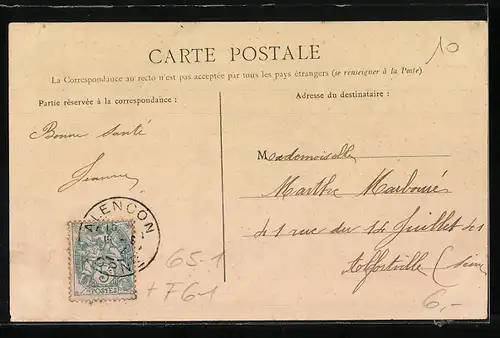 10
CARTE POSTALE
La Correspondance au recto n'est pas acceptée par tous les pays étrangers (se renseigner à la Poste)
Partie réservée à la correspondance :
Adresse du destinataire :
Bonne santé
Jeanne
Mademoiselle
Marthe
41 rue du 14 Juillet 41
Alfortville (Seine)
ALENCON
POSTES
65-1
+ F61
6,-